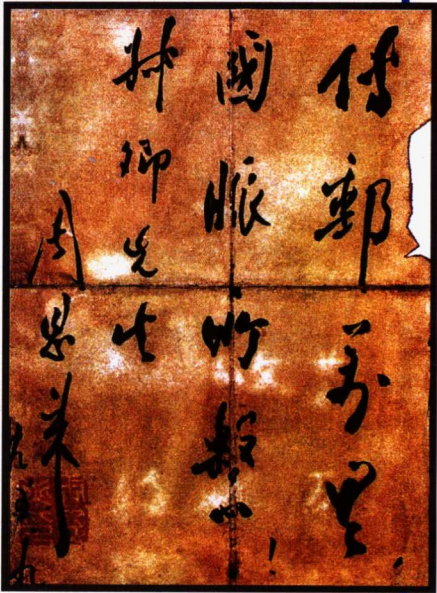 傳郵萬里，
國脈所繫！
卿先生
周恩来